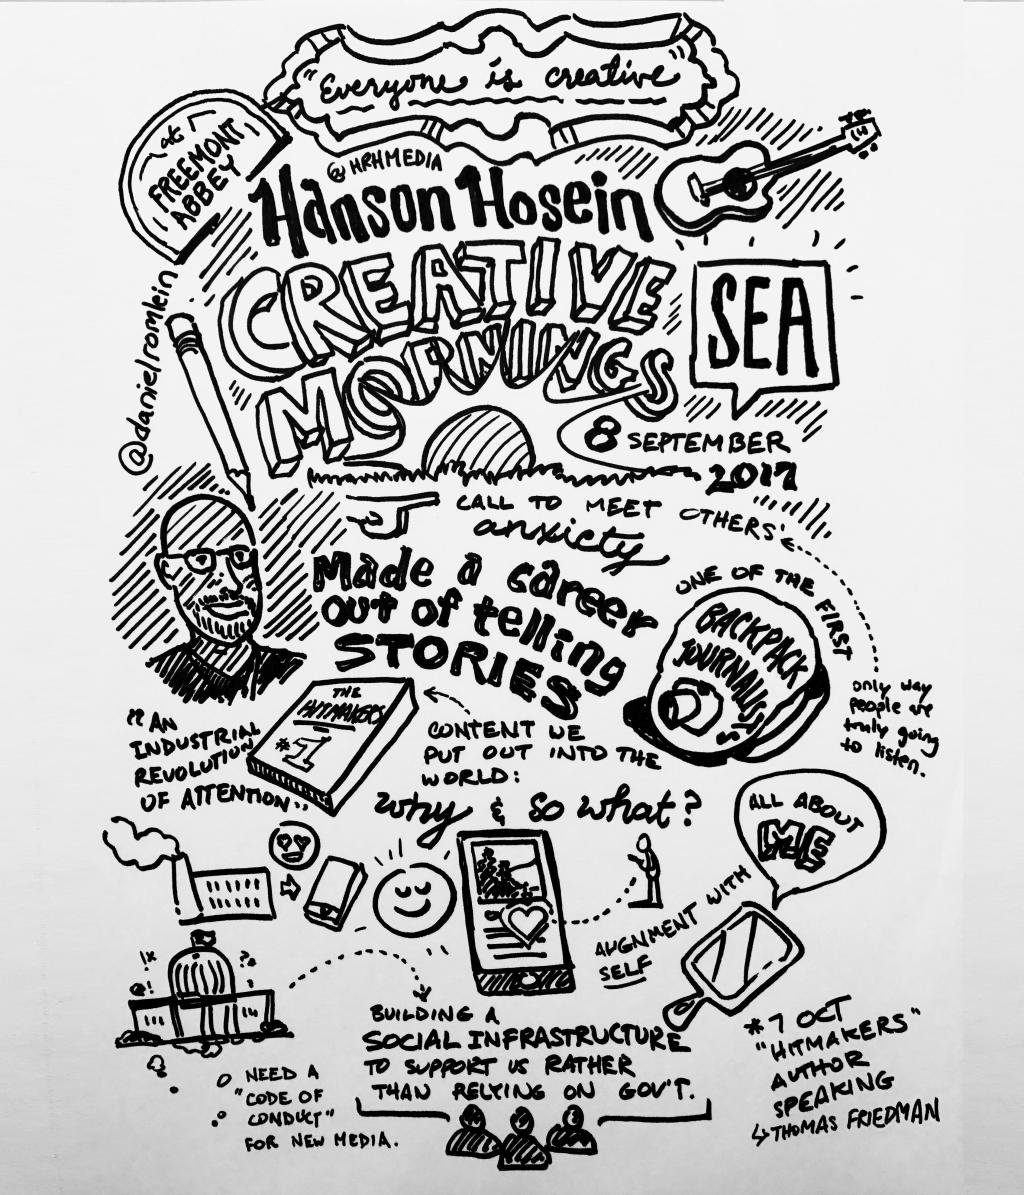 "Everyone is creative"
at
FREEMONT
ABBEY
@HRHMEDIA
Hanson Hosein
CREATIVE
MORNINGS
SEA
@danielromlein
8 SEPTEMBER
2017
CALL TO MEET OTHERS'
anxiety
Made a career
out of telling
STORIES
ONE OF THE FIRST
BACKPACK
JOURNALISTS
only way
people are
truly going
to listen.
THE
HITMAKERS
*1
"AN
INDUSTRIAL
REVOLUTION
OF ATTENTION"
CONTENT WE
PUT OUT INTO THE
WORLD:
why & so what?
ALL ABOUT
ME
ALIGNMENT WITH
SELF
!*
@!
?.
BUILDING A
SOCIAL INFRASTRUCTURE
TO SUPPORT US RATHER
THAN RELYING ON GOV'T.
NEED A
"CODE OF
CONDUCT"
FOR NEW MEDIA.
* 7 OCT
"HITMAKERS"
AUTHOR
SPEAKING
↳ THOMAS FRIEDMAN